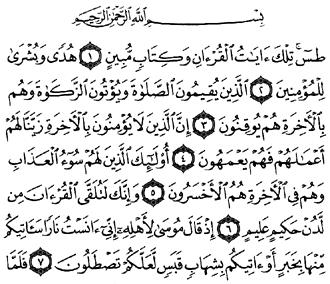 بِسْمِ ٱللَّهِ ٱلرَّحْمَٰنِ ٱلرَّحِيمِ
طسٓ ۚ تِلْكَ ءَايَٰتُ ٱلْقُرْءَانِ وَكِتَابٍ مُّبِينٍ ١ هُدًى وَبُشْرَىٰ
لِلْمُؤْمِنِينَ ٢ ٱلَّذِينَ يُقِيمُونَ ٱلصَّلَوٰةَ وَيُؤْتُونَ ٱلزَّكَوٰةَ وَهُم
بِٱلْـَٔاخِرَةِ هُمْ يُوقِنُونَ ٣ إِنَّ ٱلَّذِينَ لَا يُؤْمِنُونَ بِٱلْـَٔاخِرَةِ زَيَّنَّا لَهُمْ
أَعْمَٰلَهُمْ فَهُمْ يَعْمَهُونَ ٤ أُو۟لَٰٓئِكَ ٱلَّذِينَ لَهُمْ سُوٓءُ ٱلْعَذَابِ
وَهُمْ فِى ٱلْـَٔاخِرَةِ هُمُ ٱلْأَخْسَرُونَ ٥ وَإِنَّكَ لَتُلَقَّى ٱلْقُرْءَانَ مِن
لَّدُنْ حَكِيمٍ عَلِيمٍ ٦ إِذْ قَالَ مُوسَىٰ لِأَهْلِهِۦٓ إِنِّىٓ ءَانَسْتُ نَارًا سَـَٔاتِيكُم
مِّنْهَا بِخَبَرٍ أَوْ ءَاتِيكُم بِشِهَابٍ قَبَسٍ لَّعَلَّكُمْ تَصْطَلُونَ ٧ فَلَمَّا